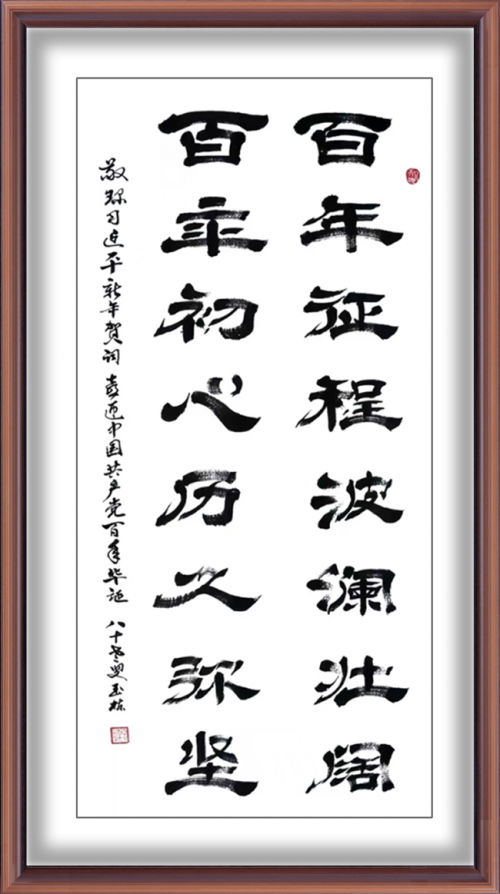 百年征程波澜壮阔
百年初心历久弥坚
敬录习近平新年贺词 喜迎中国共产党百年华诞 八十老叟玉栋